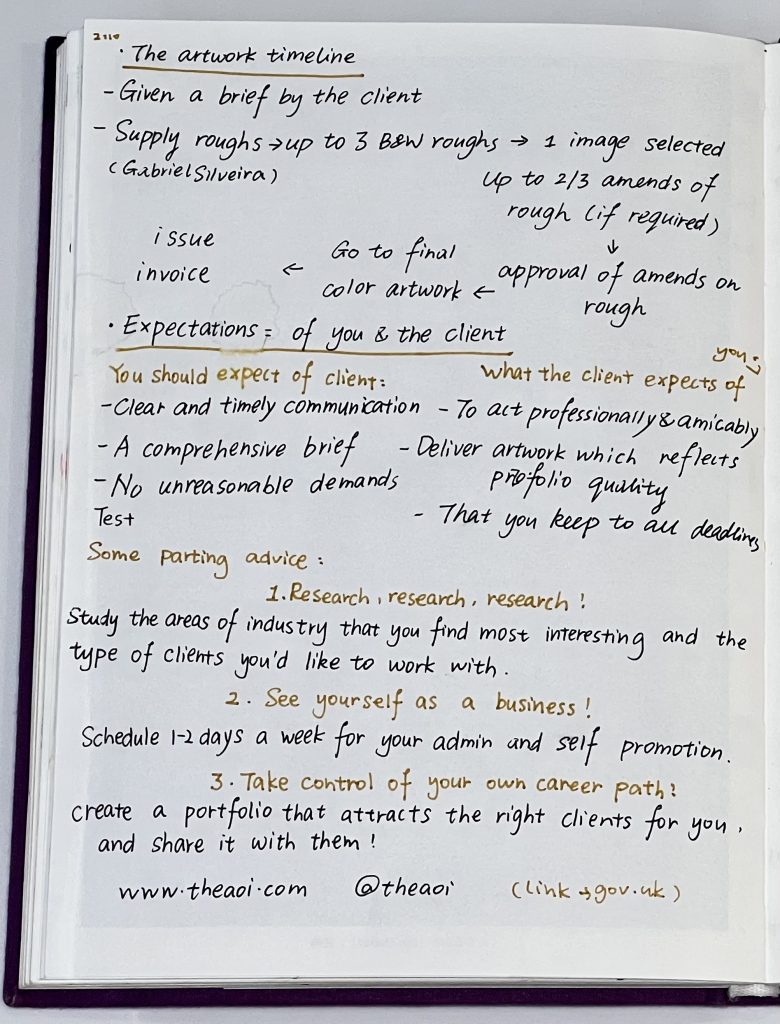 2110
· The artwork timeline
- Given a brief by the client
- Supply roughs → up to 3 B&W roughs → 1 image selected
(Gabriel Silveira)
up to 2/3 amends of
rough (if required)
↓
approval of amends on
rough
← Go to final
color artwork ←
issue
invoice
· Expectations = of you & the client
You should expect of client:
- Clear and timely communication
- A comprehensive brief
- No unreasonable demands
Test
What the client expects of
you:
- To act professionally & amicably
- Deliver artwork which reflects
protfolio quality
- That you keep to all deadlines
Some parting advice:
1. Research, research, research!
Study the areas of industry that you find most interesting and the
type of clients you'd like to work with.
2. See yourself as a business!
Schedule 1-2 days a week for your admin and self promotion.
3. Take control of your own career path!
create a portfolio that attracts the right clients for you,
and share it with them!
www.theaoi.com @theaoi (link → gov.uk)